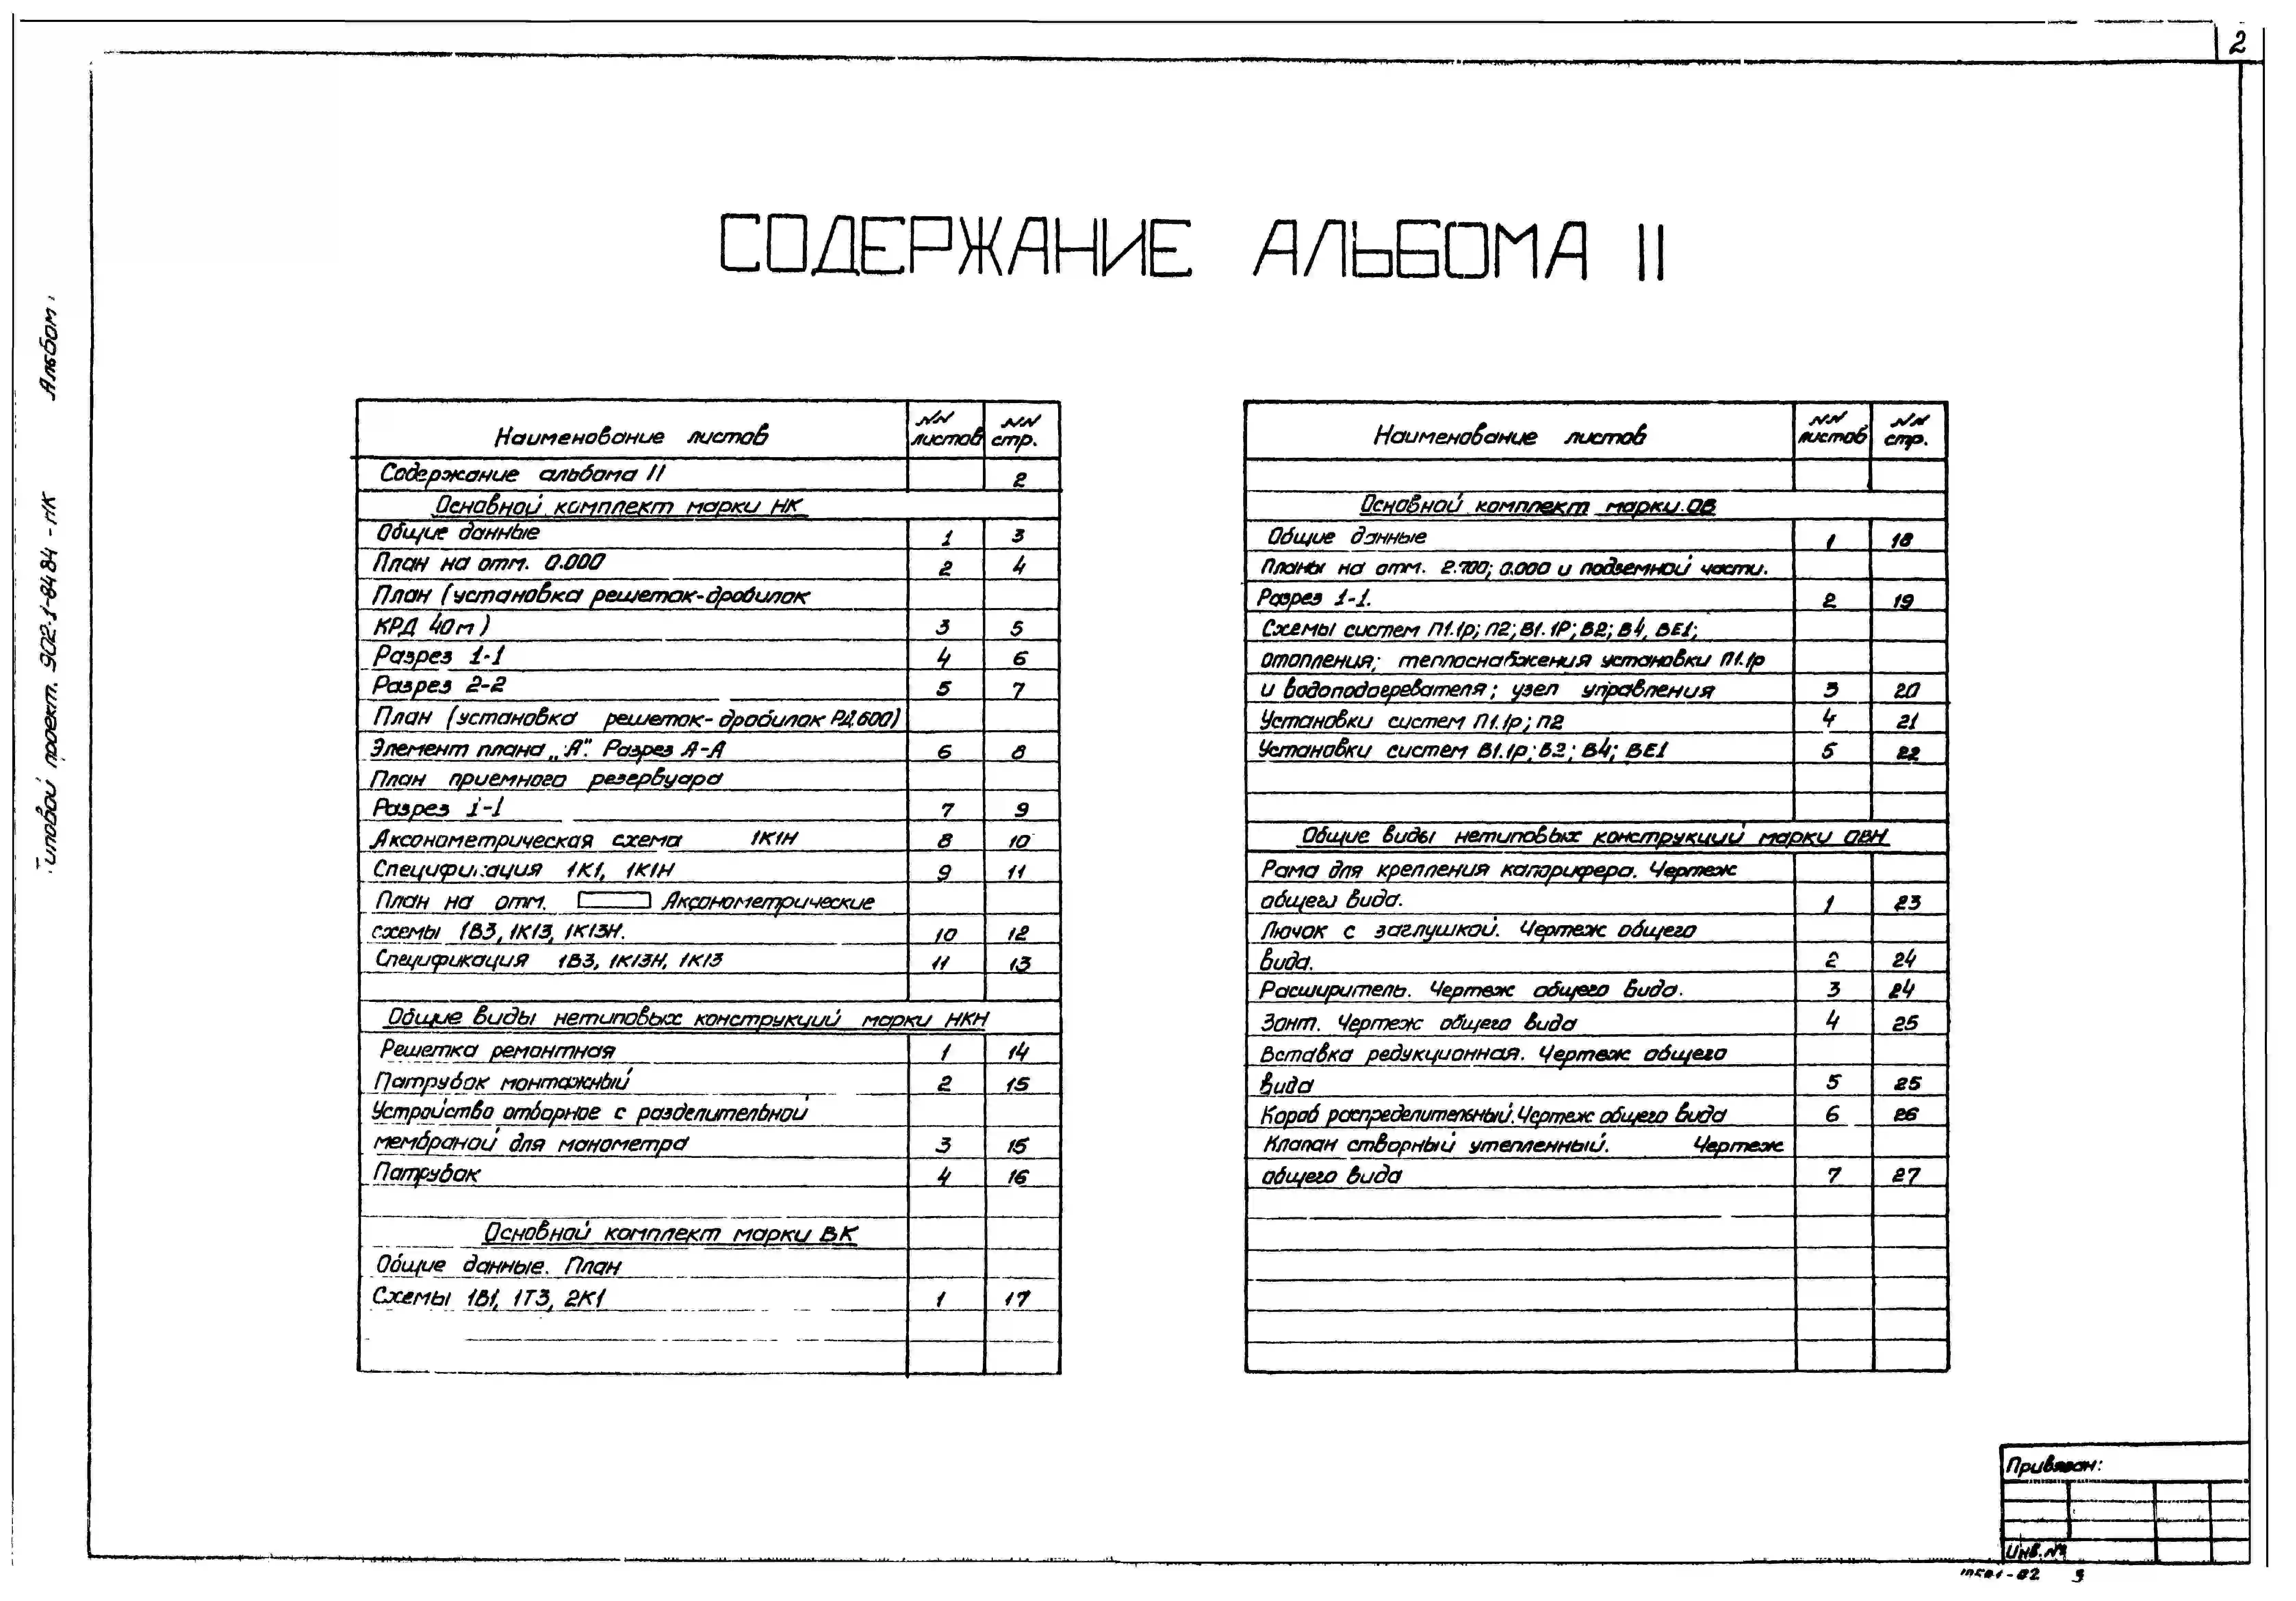 2
СОДЕРЖАНИЕ АЛЬБОМА II
Альбом
Типовой проект. 902-1-84.84 - НК
Наименование листов NN листов NN стр.
Содержание альбома II 2
Основной комплект марки НК
Общие данные 1 3
План на отм. 0.000 2 4
План (установка решеток-дробилок
КРД 40м) 3 5
Разрез 1-1 4 6
Разрез 2-2 5 7
План (установка решеток-дробилок РД600)
Элемент плана „А". Разрез А-А 6 8
План приемного резервуара
Разрез 1-1 7 9
Аксонометрическая схема 1К1Н 8 10
Спецификация 1К1, 1К1Н 9 11
План на отм. Аксонометрические
схемы 1В3, 1К13, 1К13Н. 10 12
Спецификация 1В3, 1К13Н, 1К13 11 13
Общие виды нетиповых конструкций марки НКН
Решетка ремонтная 1 14
Патрубок монтажный 2 15
Устройство отборное с разделительной
мембраной для манометра 3 15
Патрубок 4 16
Основной комплект марки ВК
Общие данные. План
Схемы 1В1, 1Т3, 2К1 1 17
Наименование листов NN листов NN стр.
Основной комплект марки ОВ
Общие данные 1 18
Планы на отм. 2.700; 0.000 и подземной части.
Разрез 1-1. 2 19
Схемы систем П1.1р; П2; В1.1Р; В2; В4, ВЕ1;
отопления; теплоснабжения установки П1.1р
и водоподогревателя; узел управления 3 20
Установки систем П1.1р; П2 4 21
Установки систем В1.1р; В2; В4; ВЕ1 5 22
Общие виды нетиповых конструкций марки ОВН
Рама для крепления калорифера. Чертеж
общего вида. 1 23
Лючок с заглушкой. Чертеж общего
вида. 2 24
Расширитель. Чертеж общего вида. 3 24
Зонт. Чертеж общего вида 4 25
Вставка редукционная. Чертеж общего
вида 5 25
Короб распределительный. Чертеж общего вида 6 26
Клапан створный утепленный. Чертеж
общего вида 7 27
Привязан:
Инв. №
-02 3